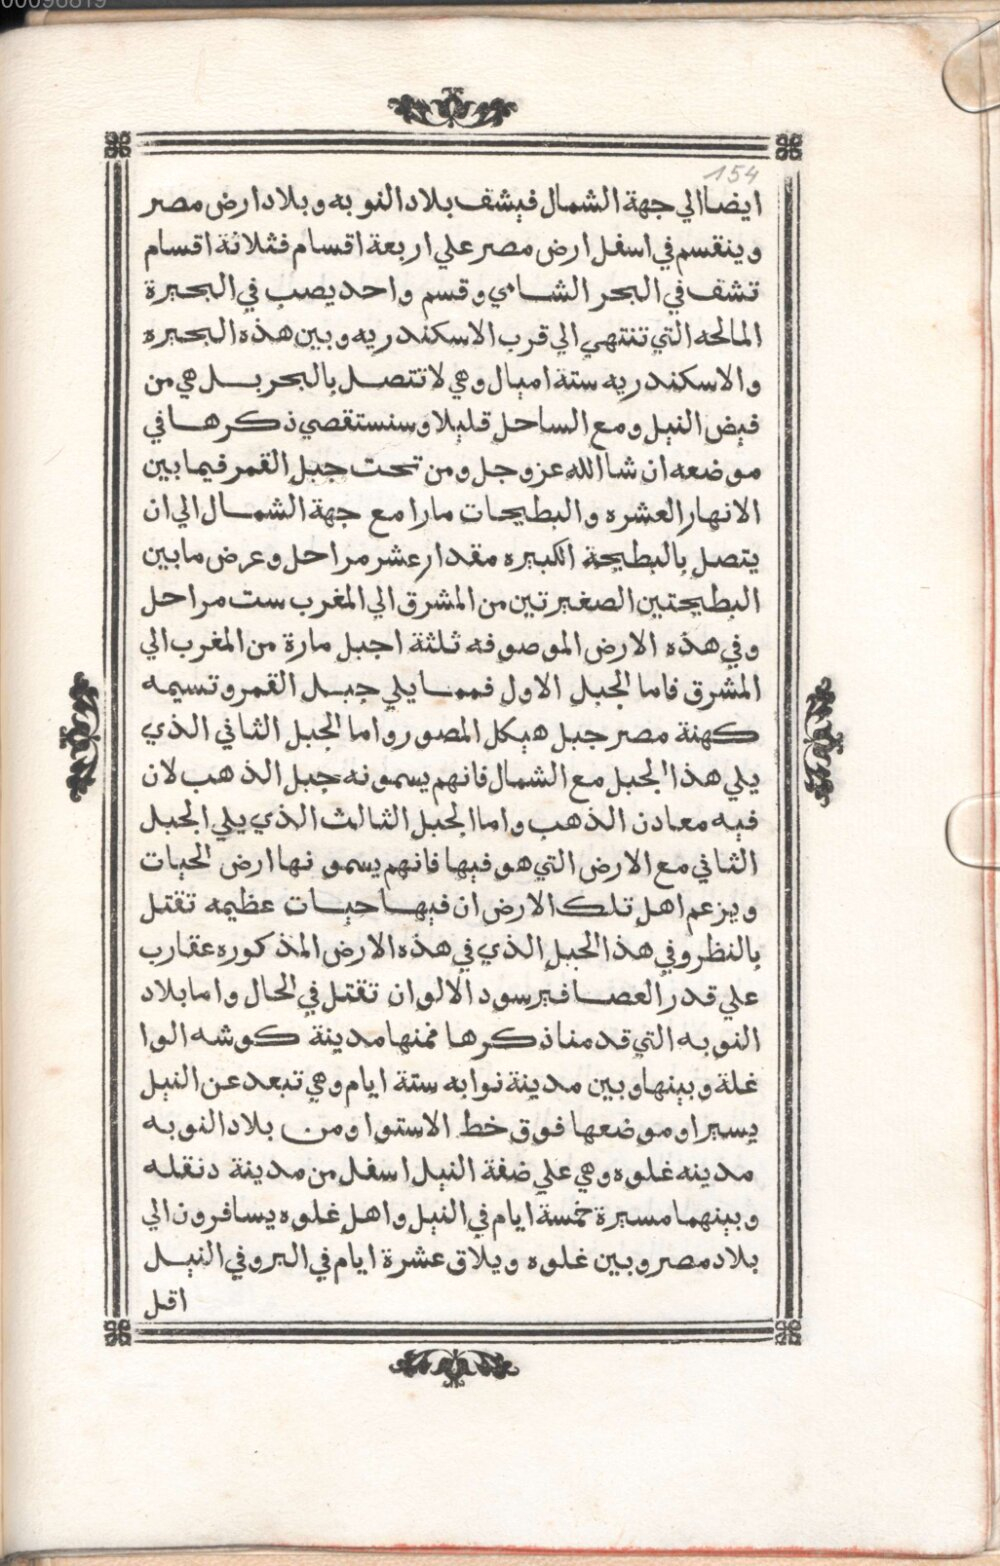 00096819
154
ايضا الي جهة الشمال فيشف بلاد النوبه وبلاد ارض مصر
وينقسم في اسفل ارض مصر علي اربعة اقسام فثلاثة اقسام
تشف في البحر الشامي وقسم واحد يصب في البحيرة
المالحه التي تنتهي الي قرب الاسكندريه وبين هذه البحيره
والاسكندريه ستة اميال وهي لا تتصل بالبحر بل هي من
فيض النيل ومع الساحل قليلا وسنستقصي ذكرها في
موضعه ان شا الله عز وجل ومن تحت جبل القمر فيما بين
الانهار العشره والبطيحات مارا مع جهة الشمال الي ان
يتصل بالبطيحة الكبيره مقدار عشر مراحل وعرض ما بين
البطيحتين الصغيرتين من المشرق الي المغرب ست مراحل
وفي هذه الارض الموصوفه ثلثة اجبل مارة من المغرب الي
المشرق فاما الجبل الاول فمما يلي جبل القمر وتسيمه
كهنة مصر جبل هيكل المصور واما الجبل الثاني الذي
يلي هذا الجبل مع الشمال فانهم يسمونه جبل الذهب لان
فيه معادن الذهب واما الجبل الثالث الذي يلي الجبل
الثاني مع الارض التي هو فيها فانهم يسمونها ارض الحيات
ويزعم اهل تلك الارض ان فيها حيات عظيمه تقتل
بالنظر وفي هذا الجبل الذي في هذه الارض المذكوره عقارب
علي قدر العصافير سود الالوان تقتل في الحال واما بلاد
النوبه التي قدمنا ذكرها فمنها مدينة كوشه الوا
غلة وبينها وبين مدينة نوابه ستة ايام وهي تبعد عن النيل
يسيرا وموضعها فوق خط الاستوا ومن بلاد النوبه
مدينه غلوه وهي علي ضفة النيل اسفل من مدينة دنقله
وبينهما مسيرة خمسة ايام في النيل واهل غلوه يسافرون الي
بلاد مصر وبين غلوه وبلاق عشرة ايام في البر وفي النيل
اقل